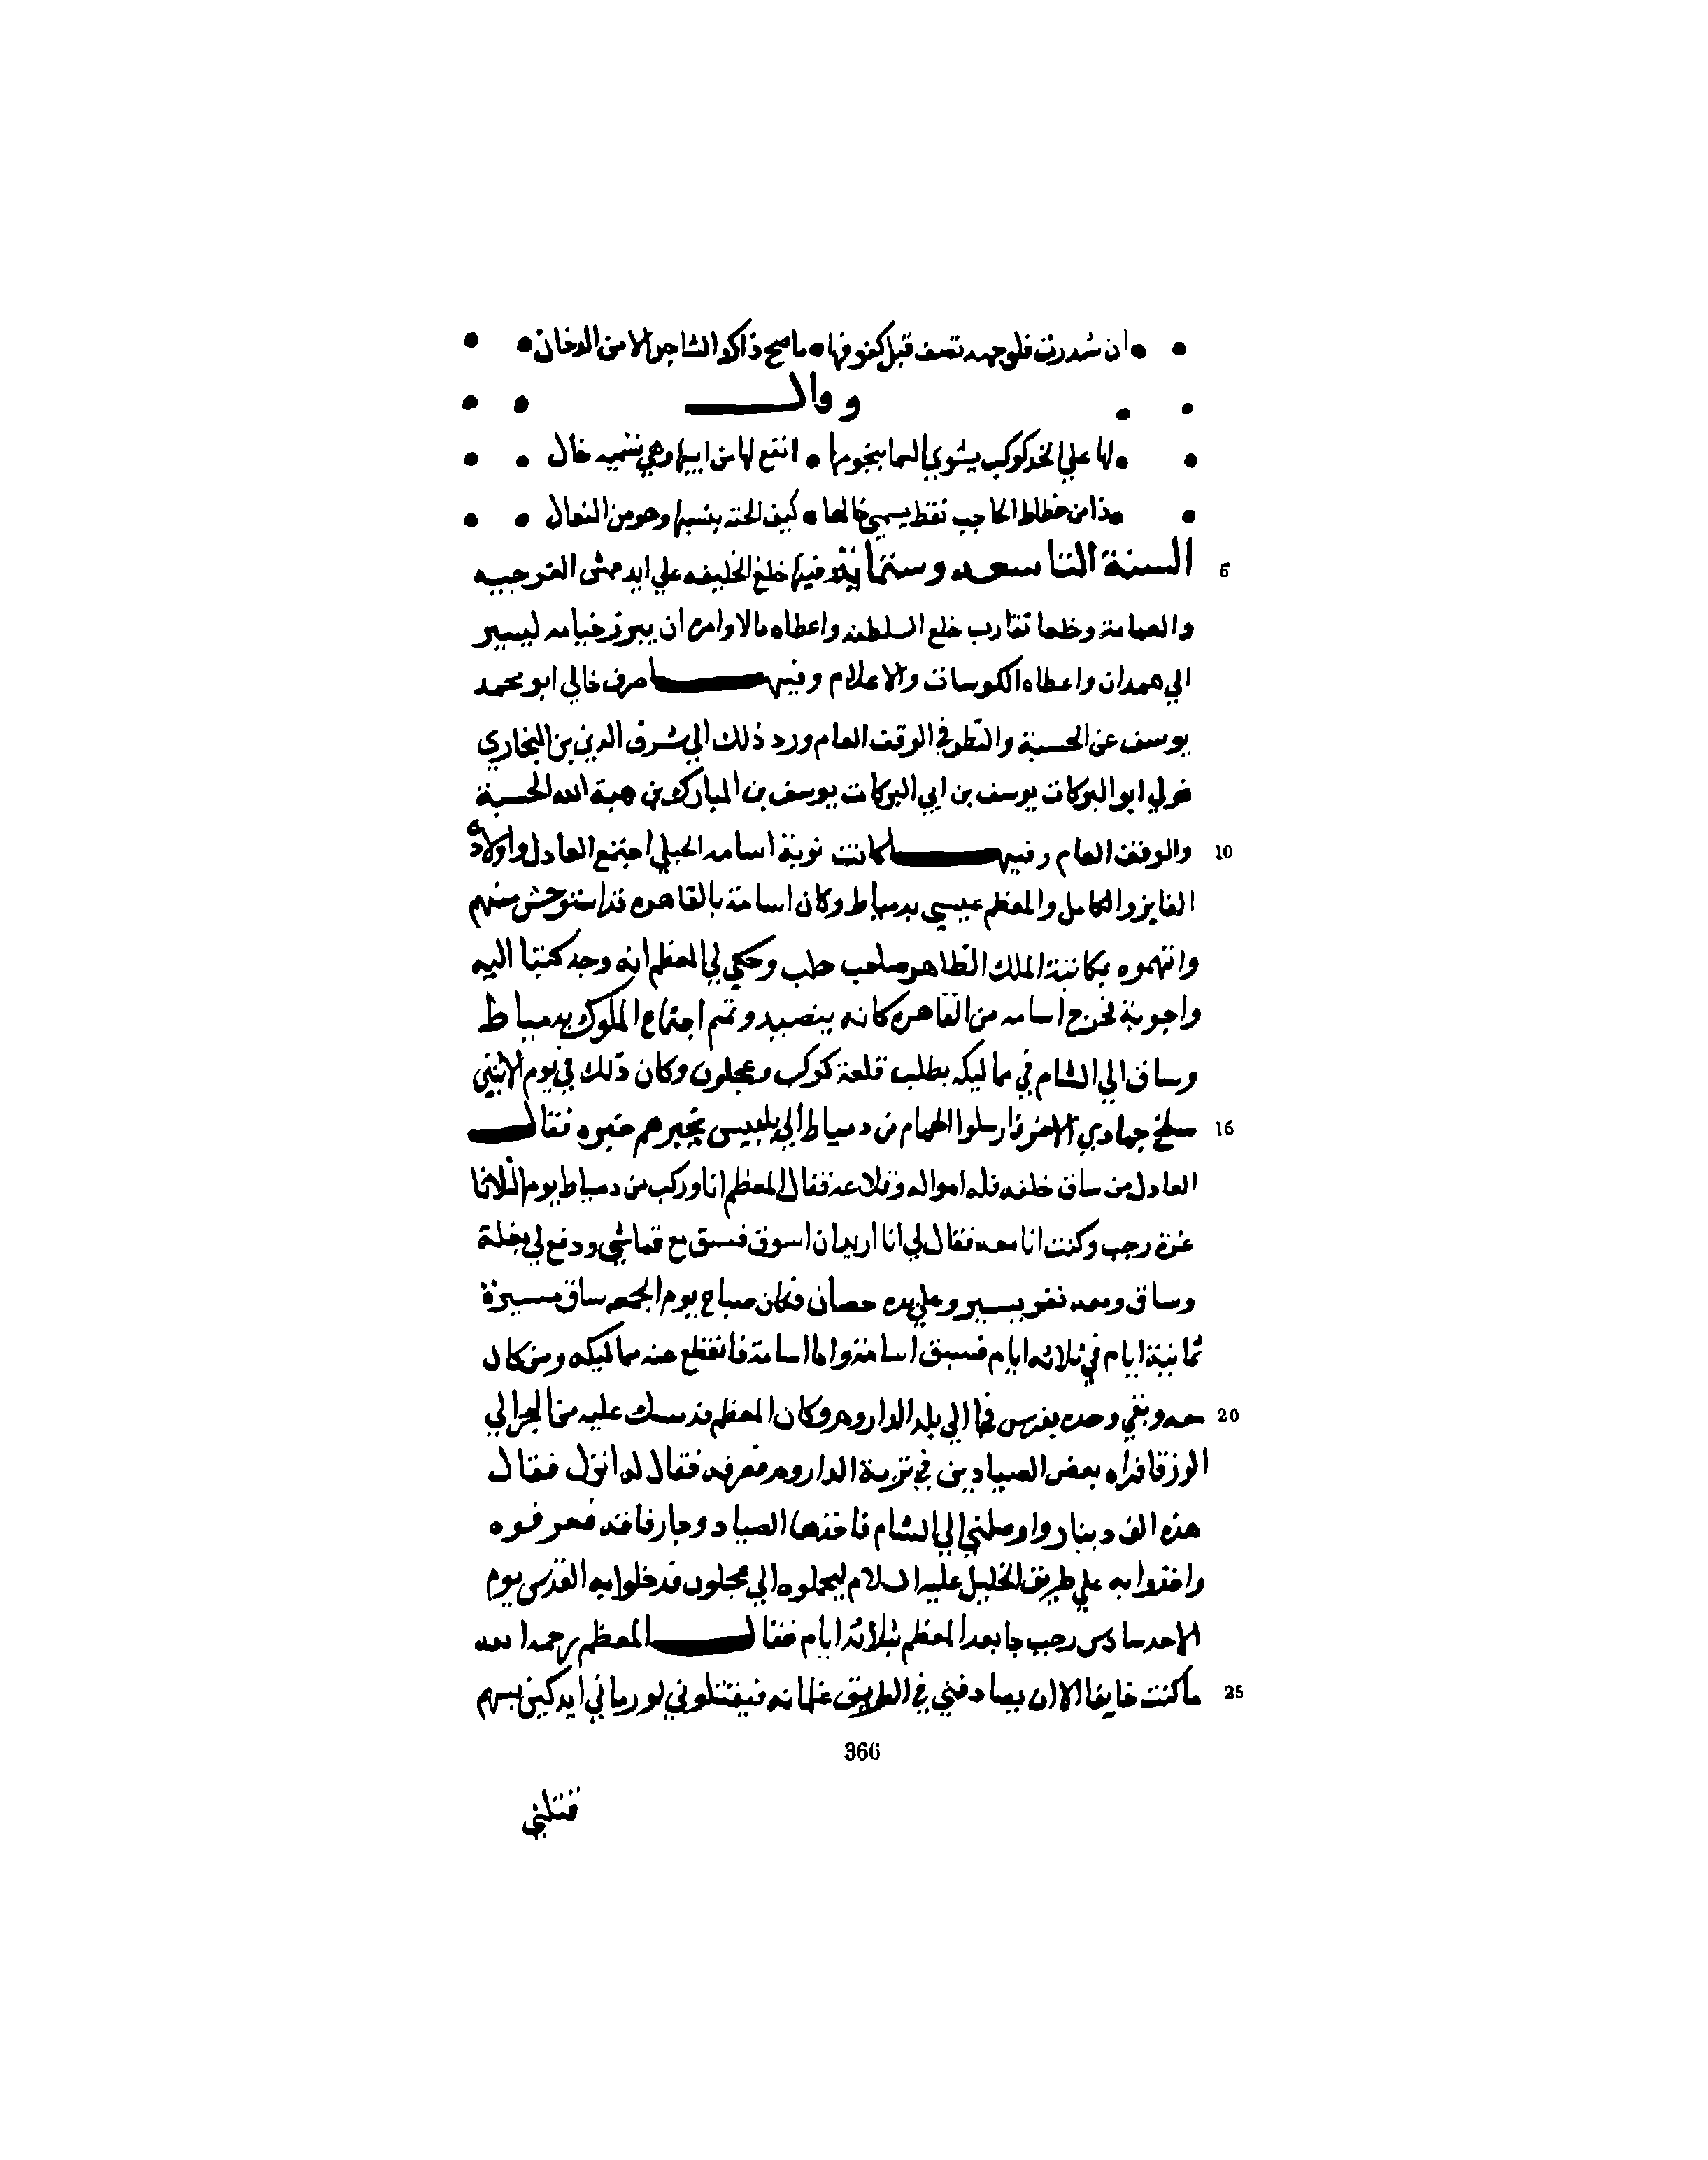 ان شدرت فلوجهه تصف قبل كفوفها • ما صح ذاك الشاجر الا من الدخان
وقال
لها علي الخد كوكب يشوي السما بنجومها • انفع لها من ابيها وهي تسميه خال
ذا من خطاط الحاجب نقط يسمي خالها • كيف الحته ينسبها وهو من النعال
السنة التاسعه وستماية وفيها خلع الخليفه علي ايدمش الفرجيه
والعمامة وخلعا تقارب خلع السلطنه واعطاه مالا وامره ان يبرز خيامه ليسير
الي همدان واعطاه الكوسات والاعلام وفيها صرف خالي ابو محمد
يوسف عن الحسبة والنظر في الوقف العام ورد ذلك الي شرف الدين بن البخاري
فولي ابو البركات يوسف بن ابي البركات يوسف بن المبارك بن هبة الله الحسبة
والوقف العام وفيها كانت نوبة اسامه الجبلي اجتمع العادل واولاده
الفايز والكامل والمعظم عيسي بدمياط وكان اسامة بالقاهره قد استوحش منهم
واتهموه بمكاتبة الملك الظاهر صاحب حلب وحكي لي المعظم انه وجد كتبا اليه
واجوبة فخرج اسامه من القاهره كانه يتصيد وتم اجتماع الملوك بدمياط
وساق الي الشام في مماليكه يطلب قلعة كوكب وعجلون وكان ذلك في يوم الاثنين
سلخ جمادي الاخره فارسلوا الحمام من دمياط الي بلبيس يخبرهم خبره فقال
العادل من ساق خلفه فله امواله وقلاعه فقال المعظم انا وركب من دمياط يوم الثلاثا
غرة رجب وكنت انا معه فقال لي انا اريد ان اسوق فسق مع قماشي ودفع لي بغلة
وساق ومعه نفر يسير وعلي يده حصان فكان صباح يوم الجمعه ساق مسيرة
ثمانية ايام في ثلاثه ايام فسبق اسامة واما اسامة فانقطع عنه مماليكه ومن كان
معه وبقي وحده بفرس فجا الي بلد الداروم وكان المعظم قد مسك عليه من البحر الي
الزرقا فراه بعض الصيادين في برية الداروم فعرفه فقال له انزل فقال
هذه الف دينار واوصلني الي الشام فاخذها الصياد وجا رفاقه فعرفوه
واخذوا به علي طريق الخليل عليه السلام ليحملوه الي عجلون فدخلوا به القدس يوم
الاحد سادس رجب جا بعد المعظم بثلاثة ايام فقال المعظم رحمه الله
ما كنت خايفا الا ان يصادفني في الطريق غلمانه فيقتلوني لو رماني ايدكين بسهم
366
قتلني
5
10
15
20
25